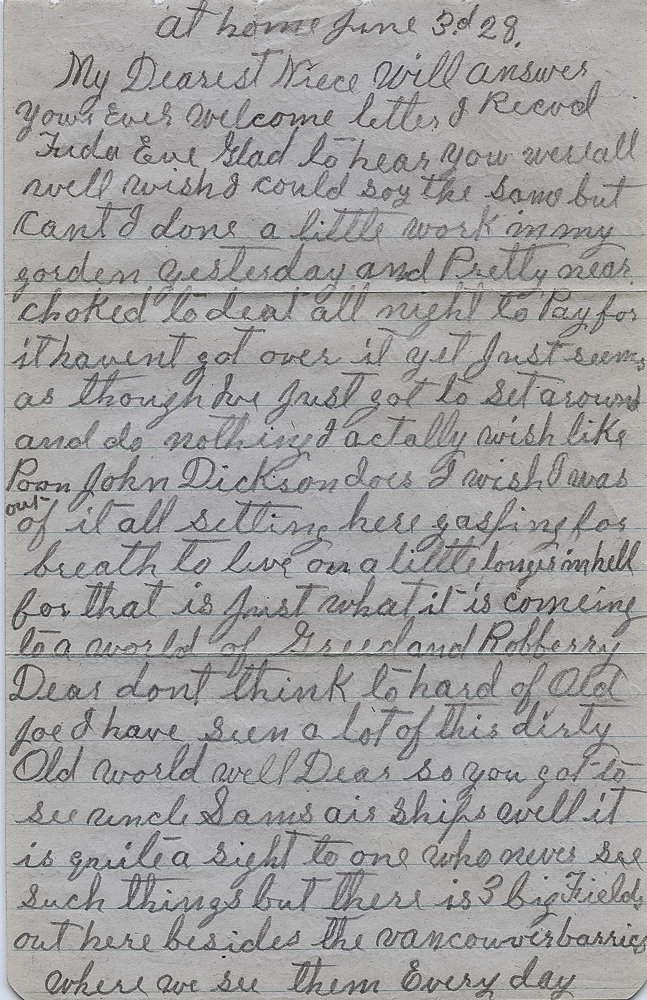 at home June 3.d 29.
My Dearest Niece will answer
your Ever welcome letter I Recvd
Frida Eve Glad to hear you were all
well wish I could say the same but
Cant I done a little work in my
gorden yesterday and Pretty near
choked to deat all night to Pay for
it havent got over it yet Just seems
as though Ive Just got to set around
and do nothing I actally wish like
Poor John Dickson does I wish I was
out
of it all setting here gasping for
breath to live on a little longer in hell
for that is Just what it is comeing
to a world of Greed and Robberry
Dear dont think to hard of Old
Joe I have seen a lot of this dirty
Old world well Dear so you got to
see uncle Sams air ships well it
is quite a sight to one who never see
such things but there is 3 big Fields
out here besides the vancouver barrics
where we see them Every day